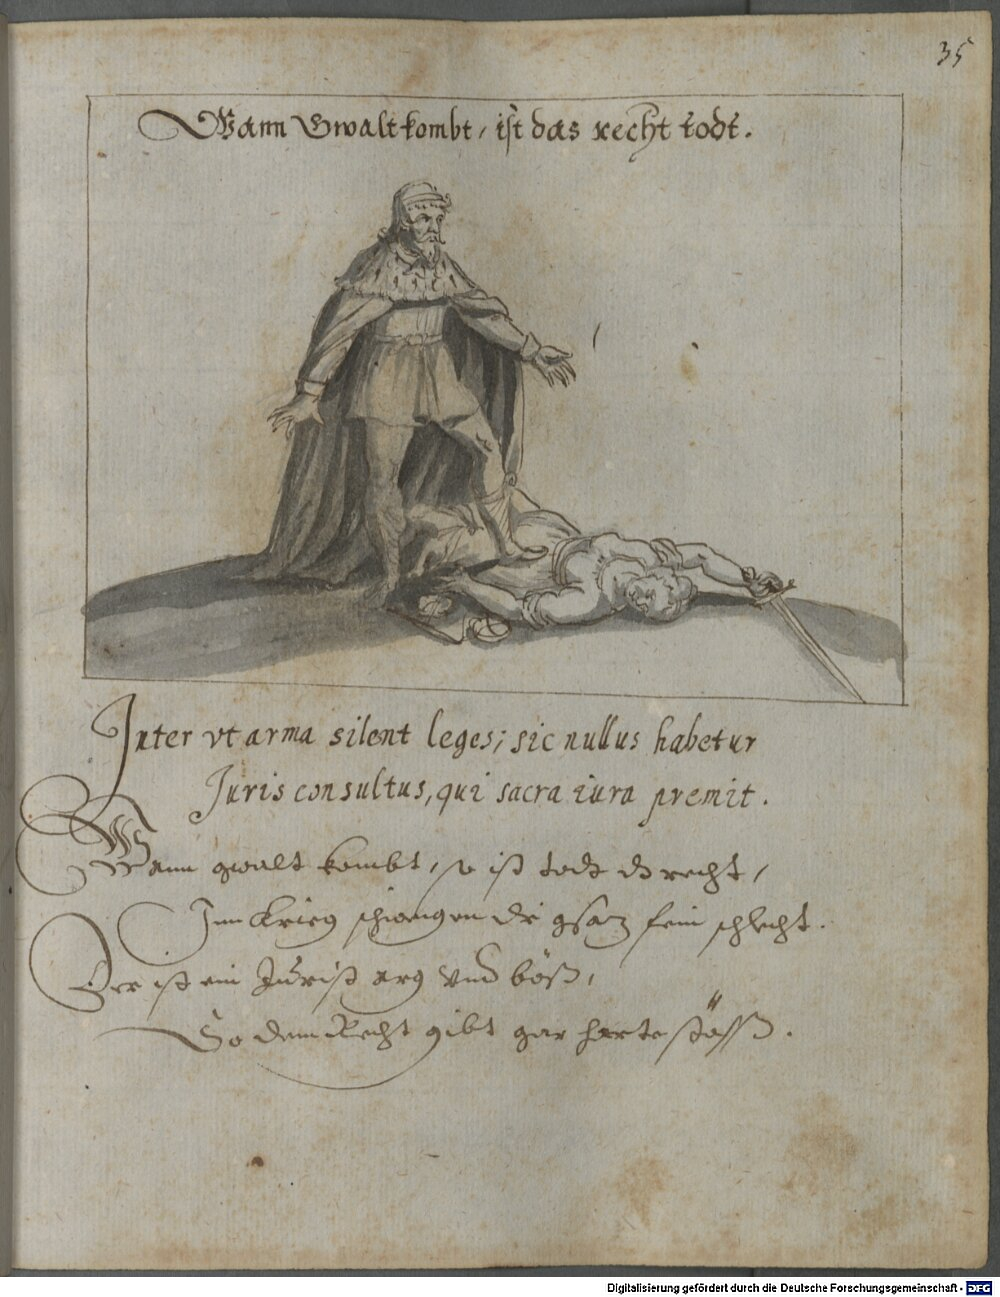 35
Wann Gwalt kombt, ist das recht todt.
Inter vt arma silent leges; sic nullus habetur
Juris consultus, qui sacra iura premit.
Wann gwalt kombt, so ist todt dz recht,
Inn Krieg schweigen die gsatz fein schlecht.
Der ist ein Jurist arg vnd böß,
So dem Recht gibt gar harte stöss.
Digitalisierung gefördert durch die Deutsche Forschungsgemeinschaft - DFG